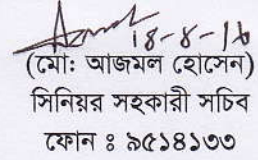 18-8-16
(মো: আজমল হোসেন)
সিনিয়র সহকারী সচিব
ফোন ঃ ৯৫১৪১৩৩